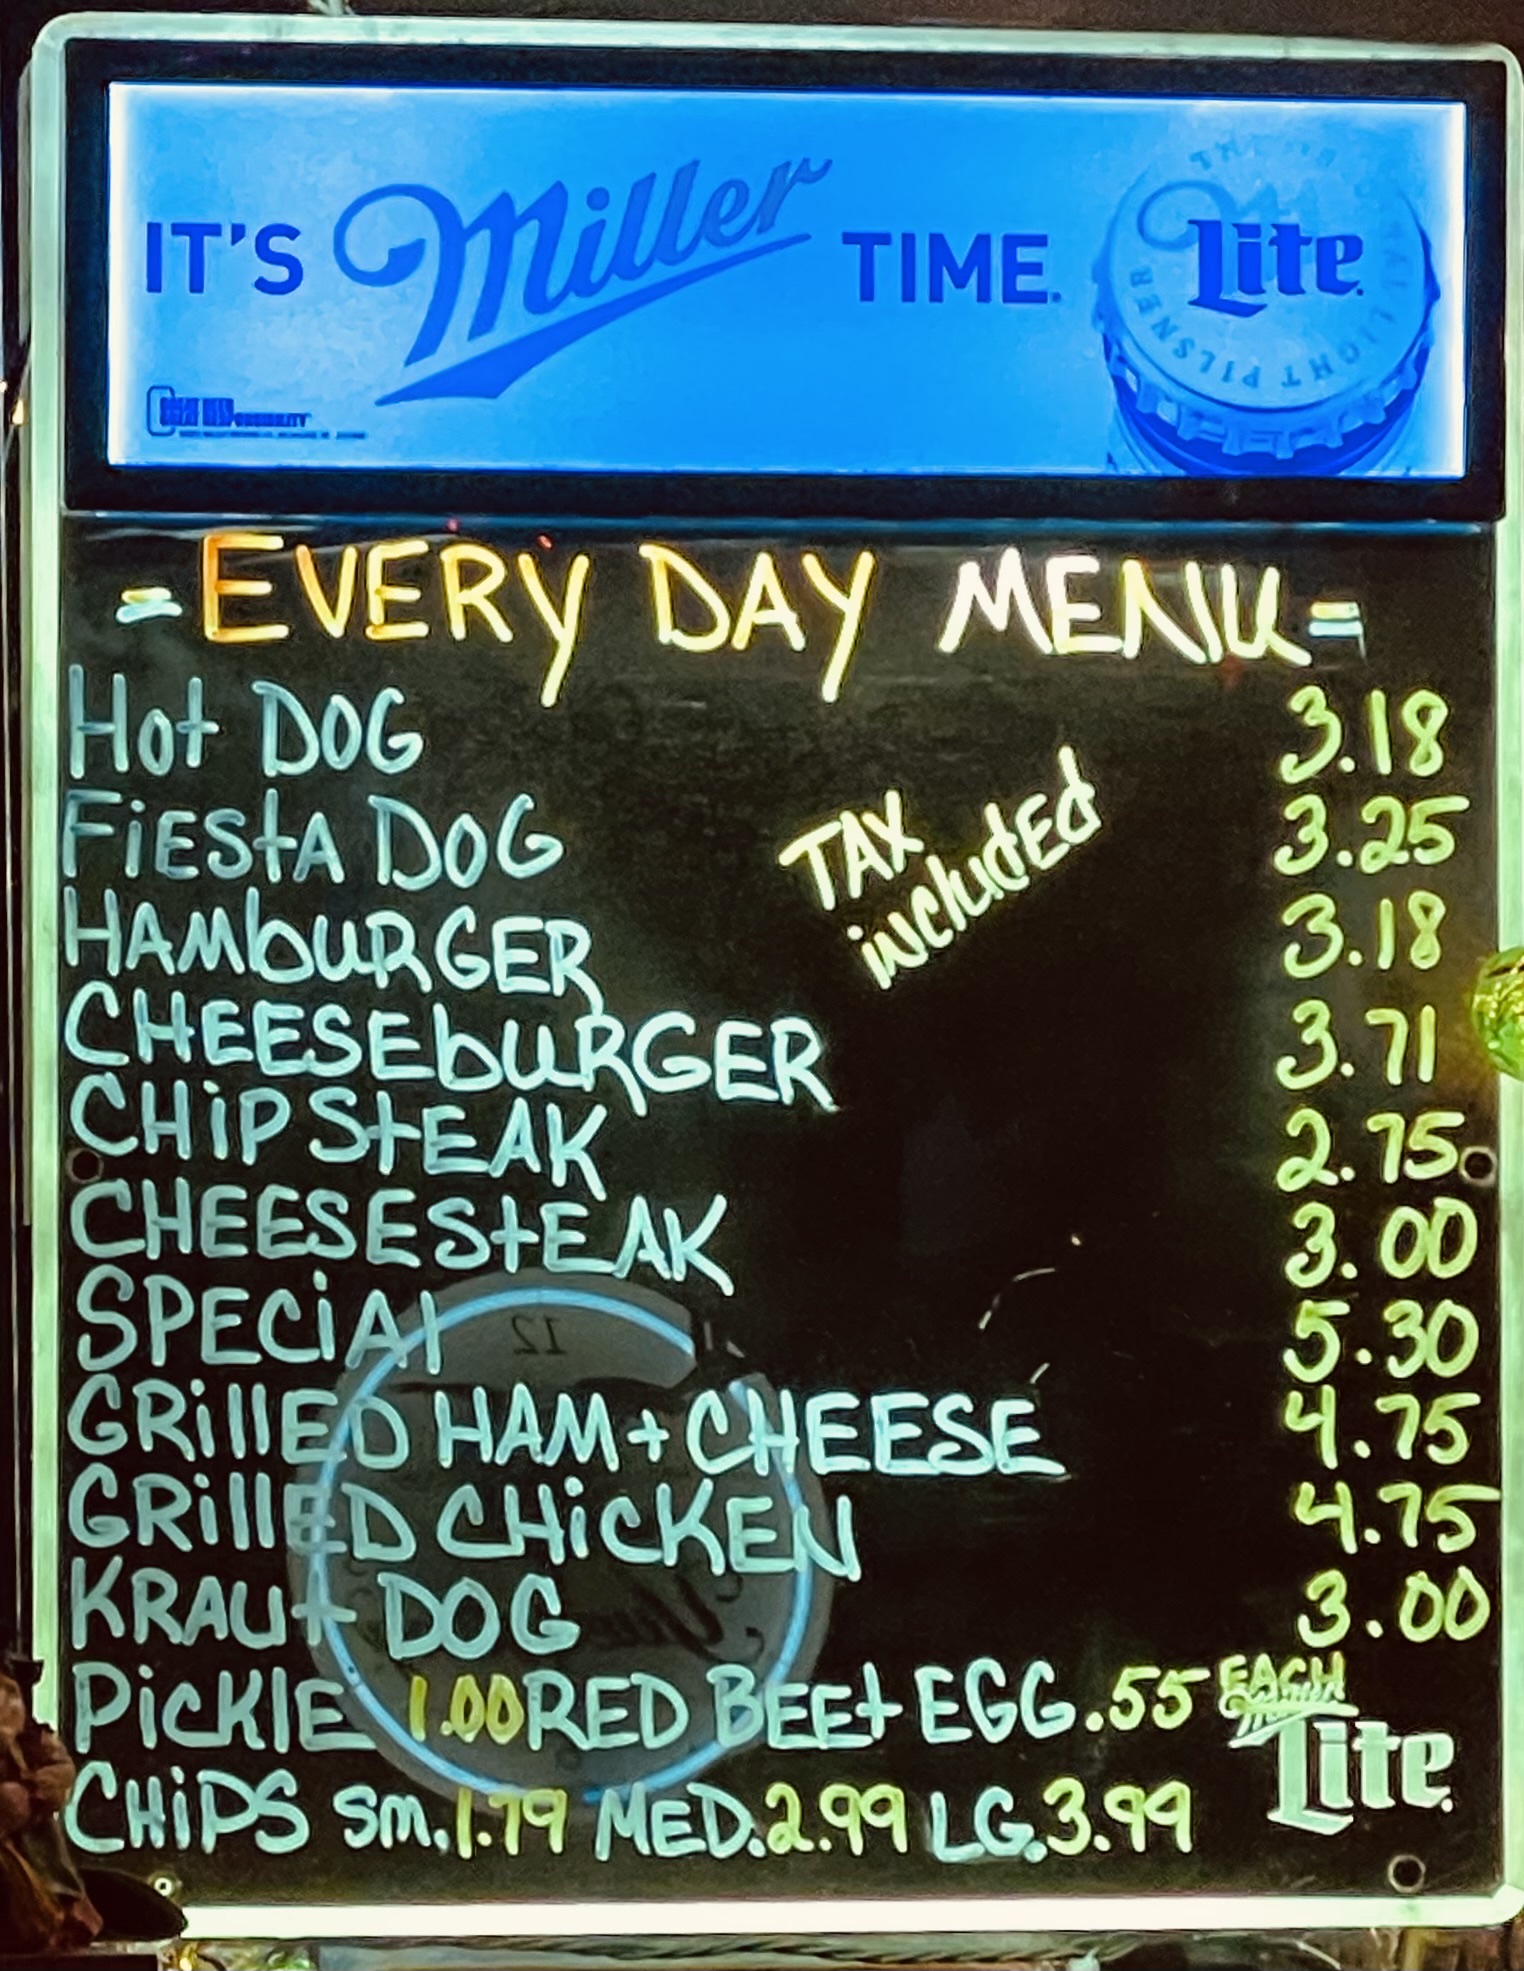 IT'S Miller TIME.
Lite
LIGHT PILSNER
- EVERY DAY MENU =
Hot DOG 3.18
FiEStA DOG 3.25
TAX
included
HAMbURGER 3.18
CHEESEbURGER 3.71
CHiP StEAK 2.75
CHEESEStEAK 3.00
SPECiAl 5.30
GRillED HAM + CHEESE 4.75
GRillED CHiCKEN 4.75
KRAUt DOG 3.00
PiCKlE 1.00 RED BEEt EGG .55 EACH
CHiPS Sm. 1.79 MED. 2.99 LG. 3.99
Lite
12